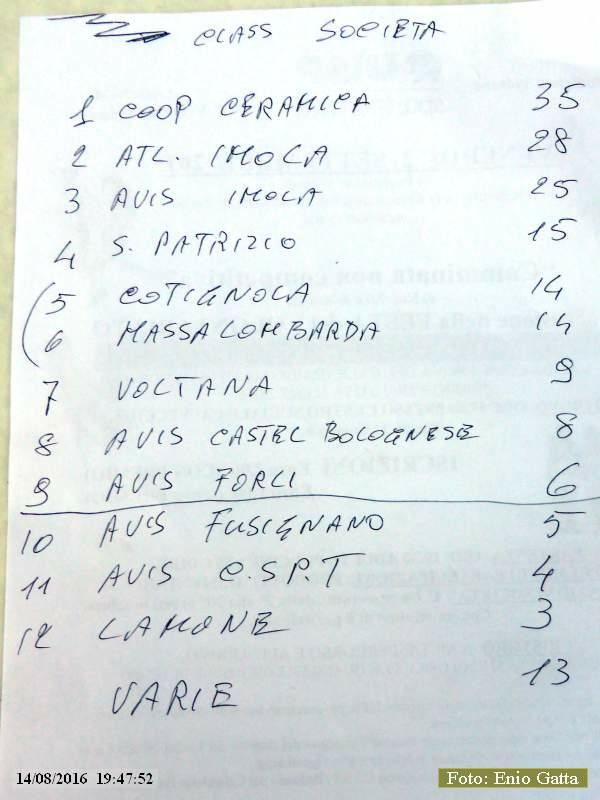 CLASS SOCIETA
1 COOP CERAMICA 35
2 ATL. IMOLA 28
3 AVIS IMOLA 25
4 S. PATRIZIO 15
5 COTIGNOLA 14
6 MASSALOMBARDA 14
7 VOLTANA 9
8 AVIS CASTEL BOLOGNESE 8
9 AVIS FORLI 6
10 AVIS FUSIGNANO 5
11 AVIS CSPT 4
12 LAMONE 3
VARIE 13
14/08/2016 19:47:52
Foto: Enio Gatta